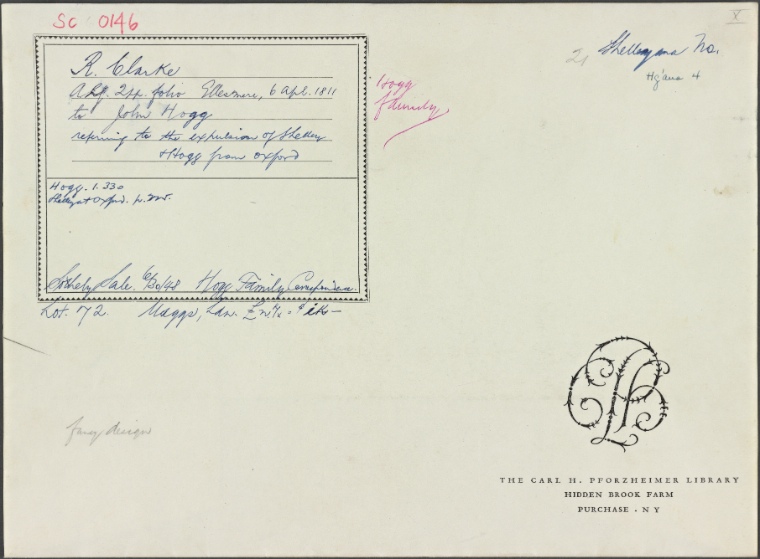 SC 0146
X
21 Shelleyana No.
Hg'ana 4
R. Clarke
2pp. folio Ellesmere, 6 Apl. 1811
to John Hogg
referring to the expulsion of Shelley
& Hogg from Oxford
Hogg family
Hogg. 1. 330
Shelley at Oxford. p.
Sotheby Sale 6/30/48 Hogg Family Correspondence
Lot. 72. Maggs, Lon.
THE CARL H. PFORZHEIMER LIBRARY
HIDDEN BROOK FARM
PURCHASE · N Y